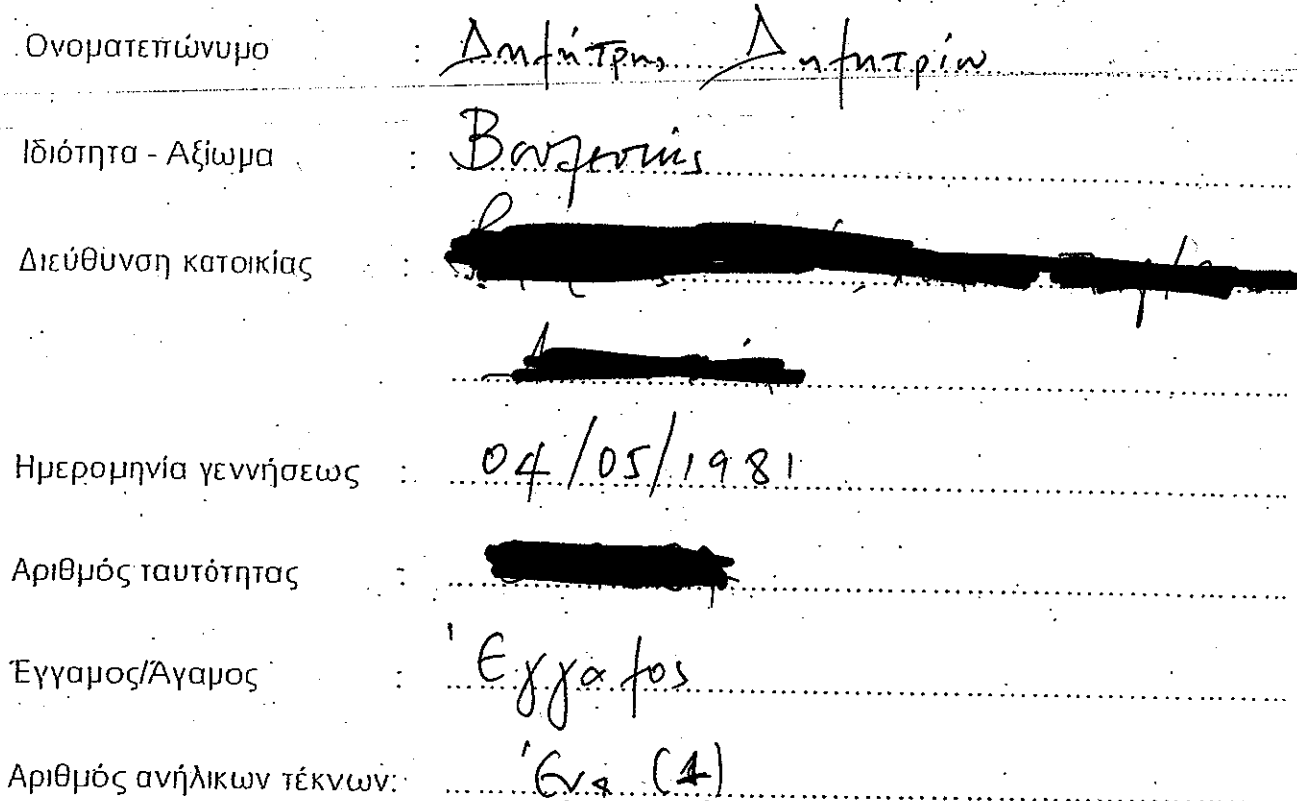 Ονοματεπώνυμο : Δημήτρης Δημητρίου
Ιδιότητα - Αξίωμα : Βουλευτής
Διεύθυνση κατοικίας :
Ημερομηνία γεννήσεως : 04/05/1981
Αριθμός ταυτότητας :
Έγγαμος/Άγαμος : Έγγαμος
Αριθμός ανήλικων τέκνων: Ένα (1)